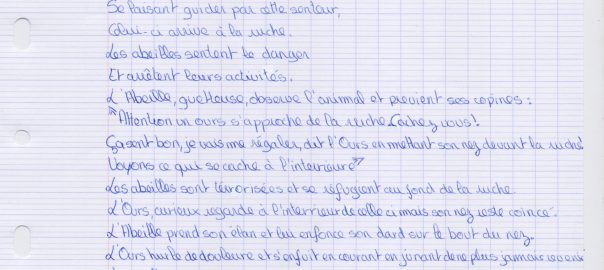 Se faisant guider par cette senteur,
Celui-ci arrive à la ruche.
Les abeilles sentent le danger
Et arrêtent leurs activités.
L'Abeille, guetteuse, observe l'animal et prévient ses copines :
"Attention un ours s'approche de la ruche. Cachez vous !
Ça sent bon, je vais me régaler, dit l'Ours en mettant son nez devant la ruche!
Voyons ce qui se cache à l'interieure"
Les abeilles sont terrorisées et se réfugient au fond de la ruche.
L'Ours, curieux regarde à l'interrieur de celle ci mais son nez reste coincé.
L'Abeille prend son élan et lui enfonce son dard sur le bout du nez.
L'Ours hurle de douleure et s'enfuit en courant en jurant de ne plus jamais revenir